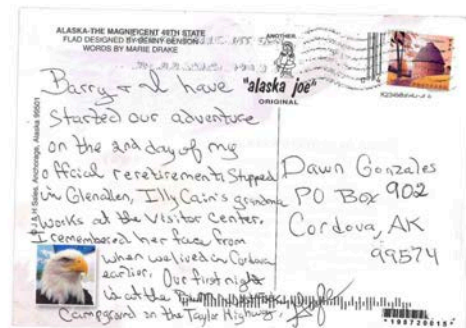 ALASKA-THE MAGNIFICENT 49TH STATE
FLAG DESIGNED BY BENNY BENSON
WORDS BY MARIE DRAKE
ANOTHER
"alaska joe"
ORIGINAL
J & H Sales, Anchorage, Alaska 99501
Barry & I have
started our adventure
on the 2nd day of my
official reretirement. Stopped
in Glenallen, Illy Cain's grandma
works at the Visitor Center.
I remembered her face from
when we lived in Cordova
earlier. Our first night
is at the
Campground on the Taylor Highway.
Dawn Gonzales
PO Box 902
Cordova, AK
99574